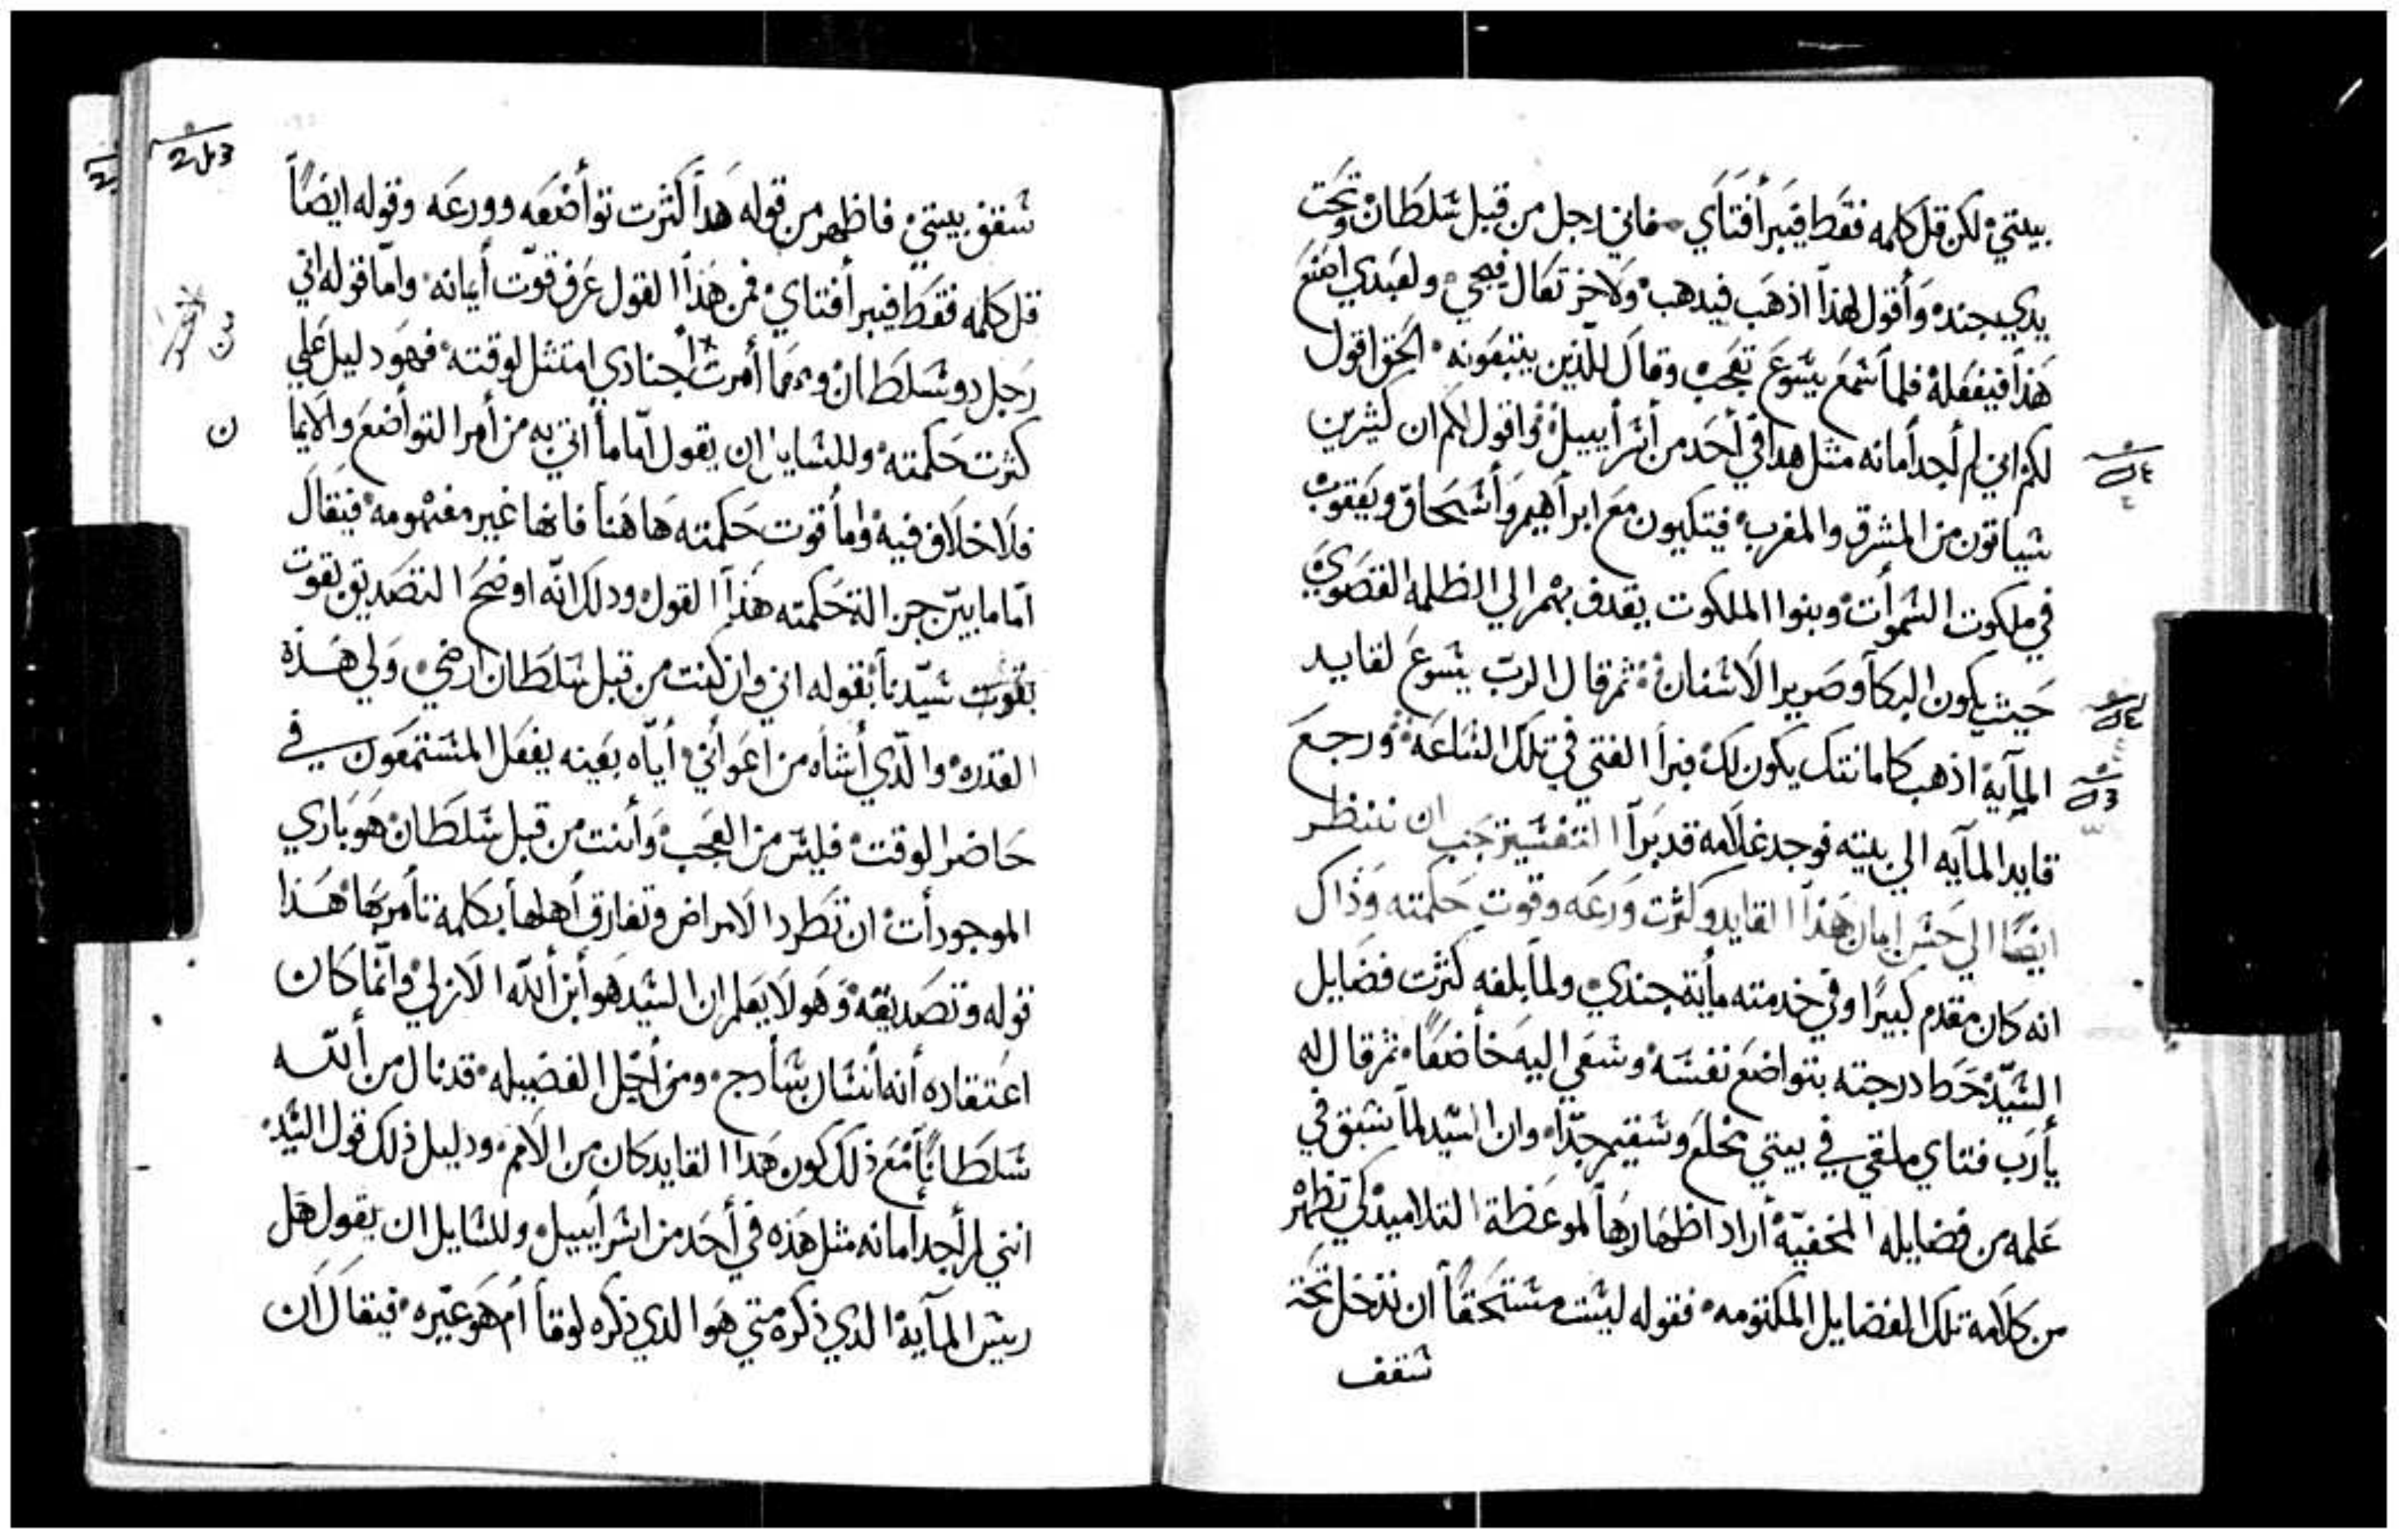 بيتي لكن قل كلمه فقط فيبرأ فتاي فاني رجل من قبل سلطان وتحت
يدي جند وأقول لهذا اذهب فيدهب ولاخر تعال فيجي ولعبدي اصنع
هذا فيفعله فلما سمع يسوع تعجب وقال للذين يتبعونه الحق اقول
لكم اني لم أجد أمانه مثل هدا في أحد من أسرأييل واقول لكم ان كثيرين
سياتون من المشرق والمغرب فيتكيون مع ابرأهيم وأسحاق ويعقوب
في ملكوت السموأت وبنوا الملكوت يقدف بهم الي الظلمه القصوي
حيث يكون البكآ وصرير الاسنان ثم قال الرب يسوع لقايد
المآية اذهب كامانتك يكون لك فبرأ الفتي في تلك الساعة ورجع
قايد المآيه الي بيته فوجد غلامه قد برآ التفسير يجب ان ننظر
ايضا الي حسن ايمان هذآ القايد وكثرت ورعه وقوت حكمته وذاك
انه كان مقدم كبيرا وفي خدمته مأية جندي ولما بلغه كثرت فضايل
السيد حط درجته بتواضع نفسه وسعي اليه خأضعا ثم قال له
يأرب فتاي ملقي في بيتي مخلع وسقيم جدا وان السيد لمآ سبق في
علمه من فضايله المخفية أراد اظهارها لموعظة التلاميد لكي تظهر
من كلامه تلك الفضايل المكتومه فقوله لست مستحقا أن تدخل تحت
سقف
2 ل 3
سقف بيتي فاظهر من قوله هدآ كثرت توأضعه وورعه وقوله ايضاً
قل كلمه فقط فيبرأ فتاي فمن هذآ القول عرف قوت أيمانه وامّا قوله اني
رجل دو سلطان ومهما أمرت اجنادي امتثل لوقته فهو دليل علي
كثرت حكمته وللسايل ان يقول امّا ما أتي به من أمر التوأضع والايما
ن
فلا خلاف فيه واما قوت حكمته هاهنا فانها غير مفهومه فيقال
امّا ما بين جزالة حكمته هذآ القول ودلك انّه اوضح التصديق بقوت
بقوت سيّدنا بقوله اني وان كنت من قبل سلطان أرضي ولي هذه
القدره والّدي أشأه من أعوأني أيّاه بعينه يفعل المستمعون في
حاضر الوقت فليس من العجب وأنت من قبل سلطان هو باري
الموجودأت ان تطرد الامراض وتفارق أهلها بكلمة تأمر بها هذا
قوله وتصديقه وهو لا يعلم ان السيد هو أبن أللّه الازلي وانّما كان
اعتقاده أنه أنسان سأدج ومن أجل الفضيله قد نال من أللّه
سلطاناً مع ذلك كون هدا القايد كان من الامم ودليل ذلك قول السّيد
انني لم أجد أمانه مثل هذه في أحد من اسرأييل وللسايل ان يقول هل
ريس المآية الذي ذكره متي هو الذي ذكره لوقأ أم هو غيره فيقال أن